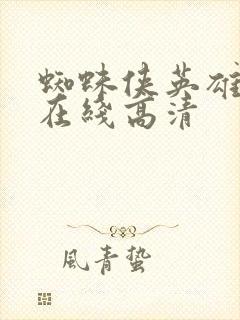 蜘蛛侠英雄
在綫高清
風青蛰